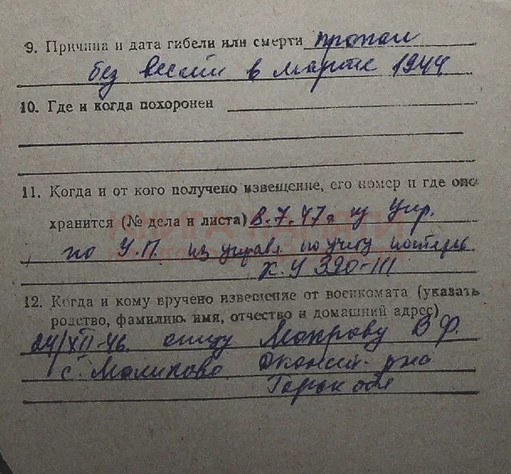 9. Причина и дата гибели или смерти пропал
без вести в марте 1944
10. Где и когда похоронен
11. Когда и от кого получено извещение, его номер и где оно
хранится (№ дела и листа) 8.7.47г из Упр.
по У.П. из управл по учету потерь
320-III
12. Когда и кому вручено извещение от военкомата (указать
родство, фамилию, имя, отчество и домашний адрес)
24/XII-46. отцу Мокрову В Ф.
с. Маликово рна
Горьк обл